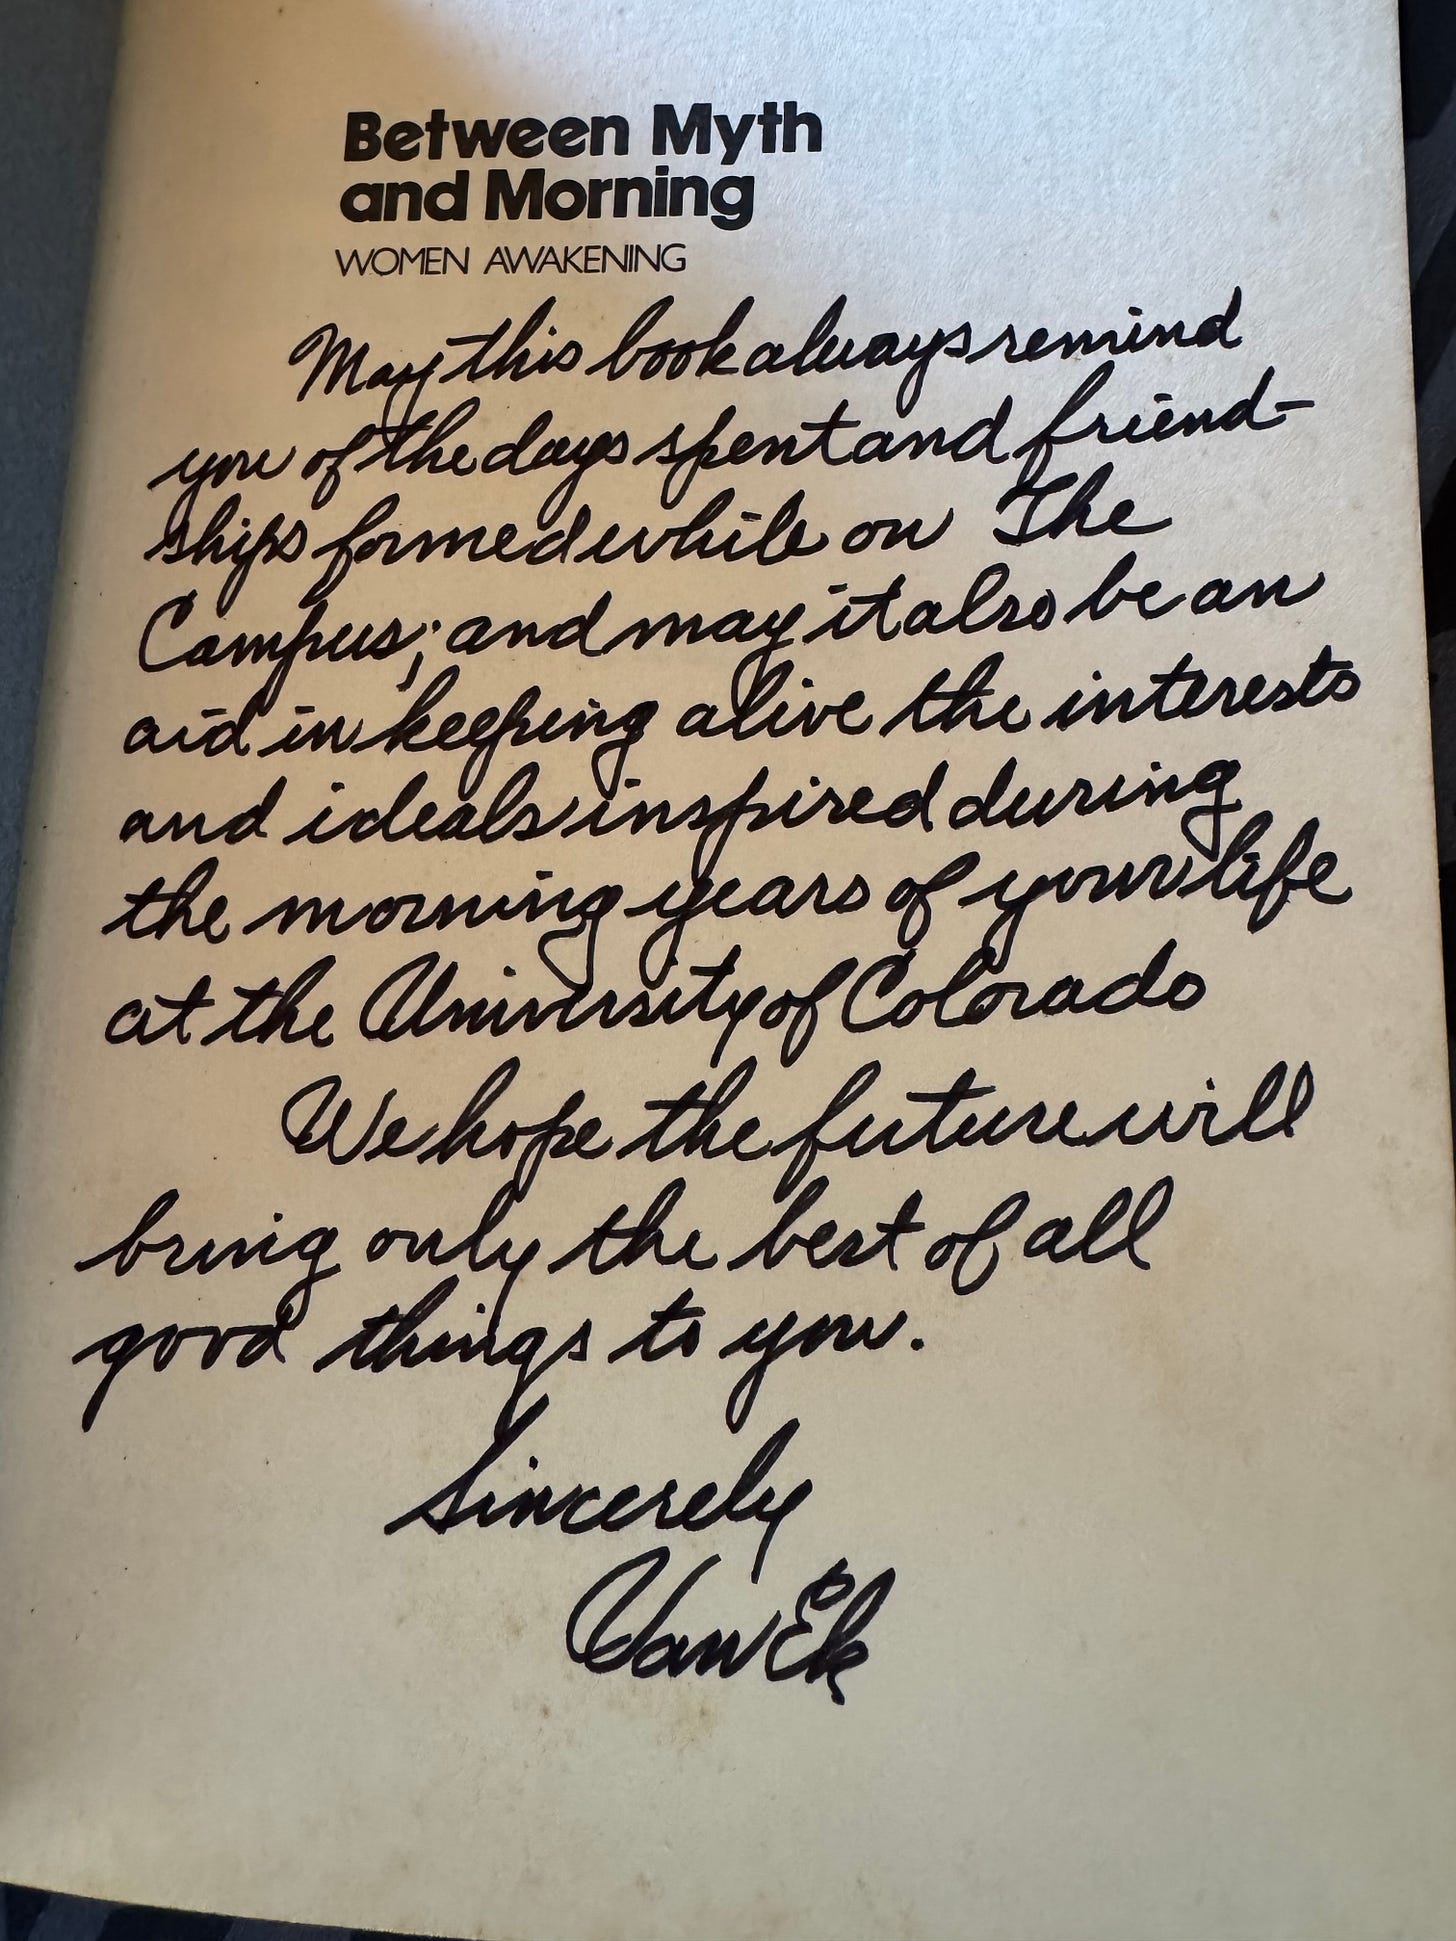 Between Myth
and Morning
WOMEN AWAKENING
May this book always remind
you of the days spent and friend-
ships formed while on The
Campus; and may it also be an
aid in keeping alive the interests
and ideals inspired during
the morning years of your life
at the University of Colorado
We hope the future will
bring only the best of all
good things to you.
Sincerely
Van Ek